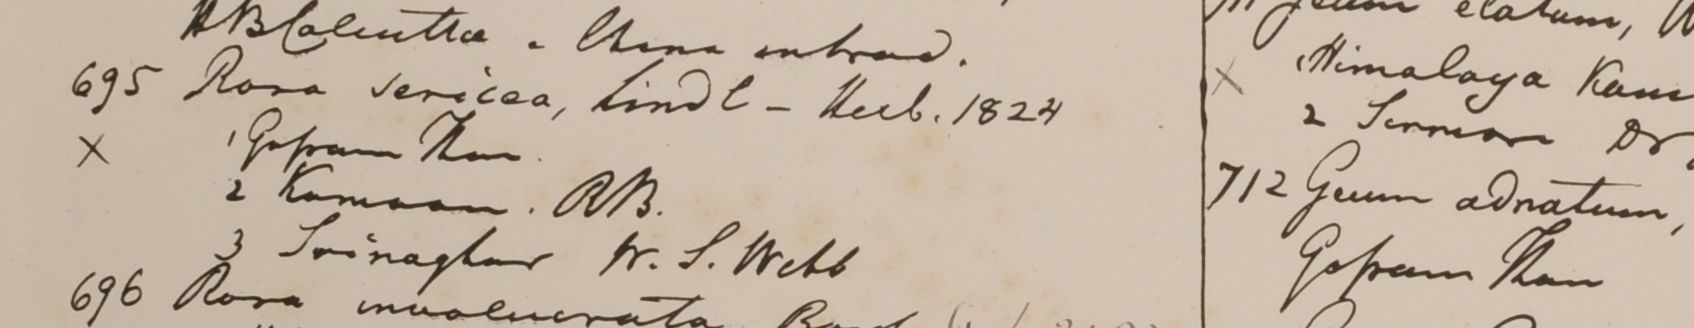 HBCalcutta - China introd.
695 Rosa sericea, Lindl - Herb. 1824
× 1 Gossam Than
2 Kamaon. RB.
3 Srinaghur W. S. Webb
696 Rosa involucrata Roxb
711 Geum elatum, W
× 1 Himalaya Kam
2 Sirmore Dr
712 Geum adnatum,
Gossam Than